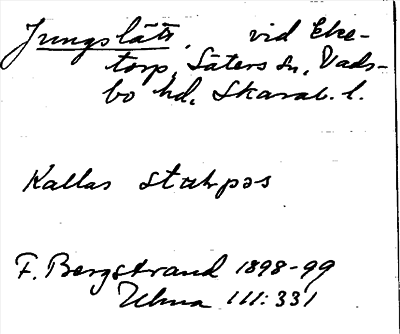 Jungslätt, vid Eke-
torp, Säters sn, Vads-
bo hd. Skarab. l.
Kallas
F. Bergstrand 1898-99
Ulma 111:331